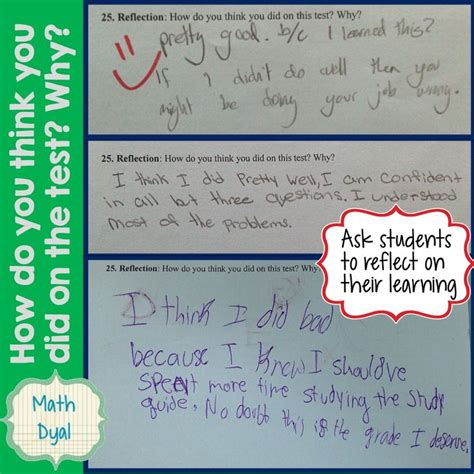 How do you think you
did on the test? Why?
Math
Dyal
25. Reflection: How do you think you did on this test? Why?
pretty good. b/c I learned this?
If I didn't do well then you
might be doing your job wrong.
25. Reflection: How do you think you did on this test? Why?
I think I did Pretty Well, I am Confident
in all but three questions. I understood
most of the problems.
Ask students
to reflect on
their learning
25. Reflection: How do you think you did on this test? Why
I think I did bad
because I Knew I should've
SPENT more time studying the study
guide. No doubt this is the grade I deserve.